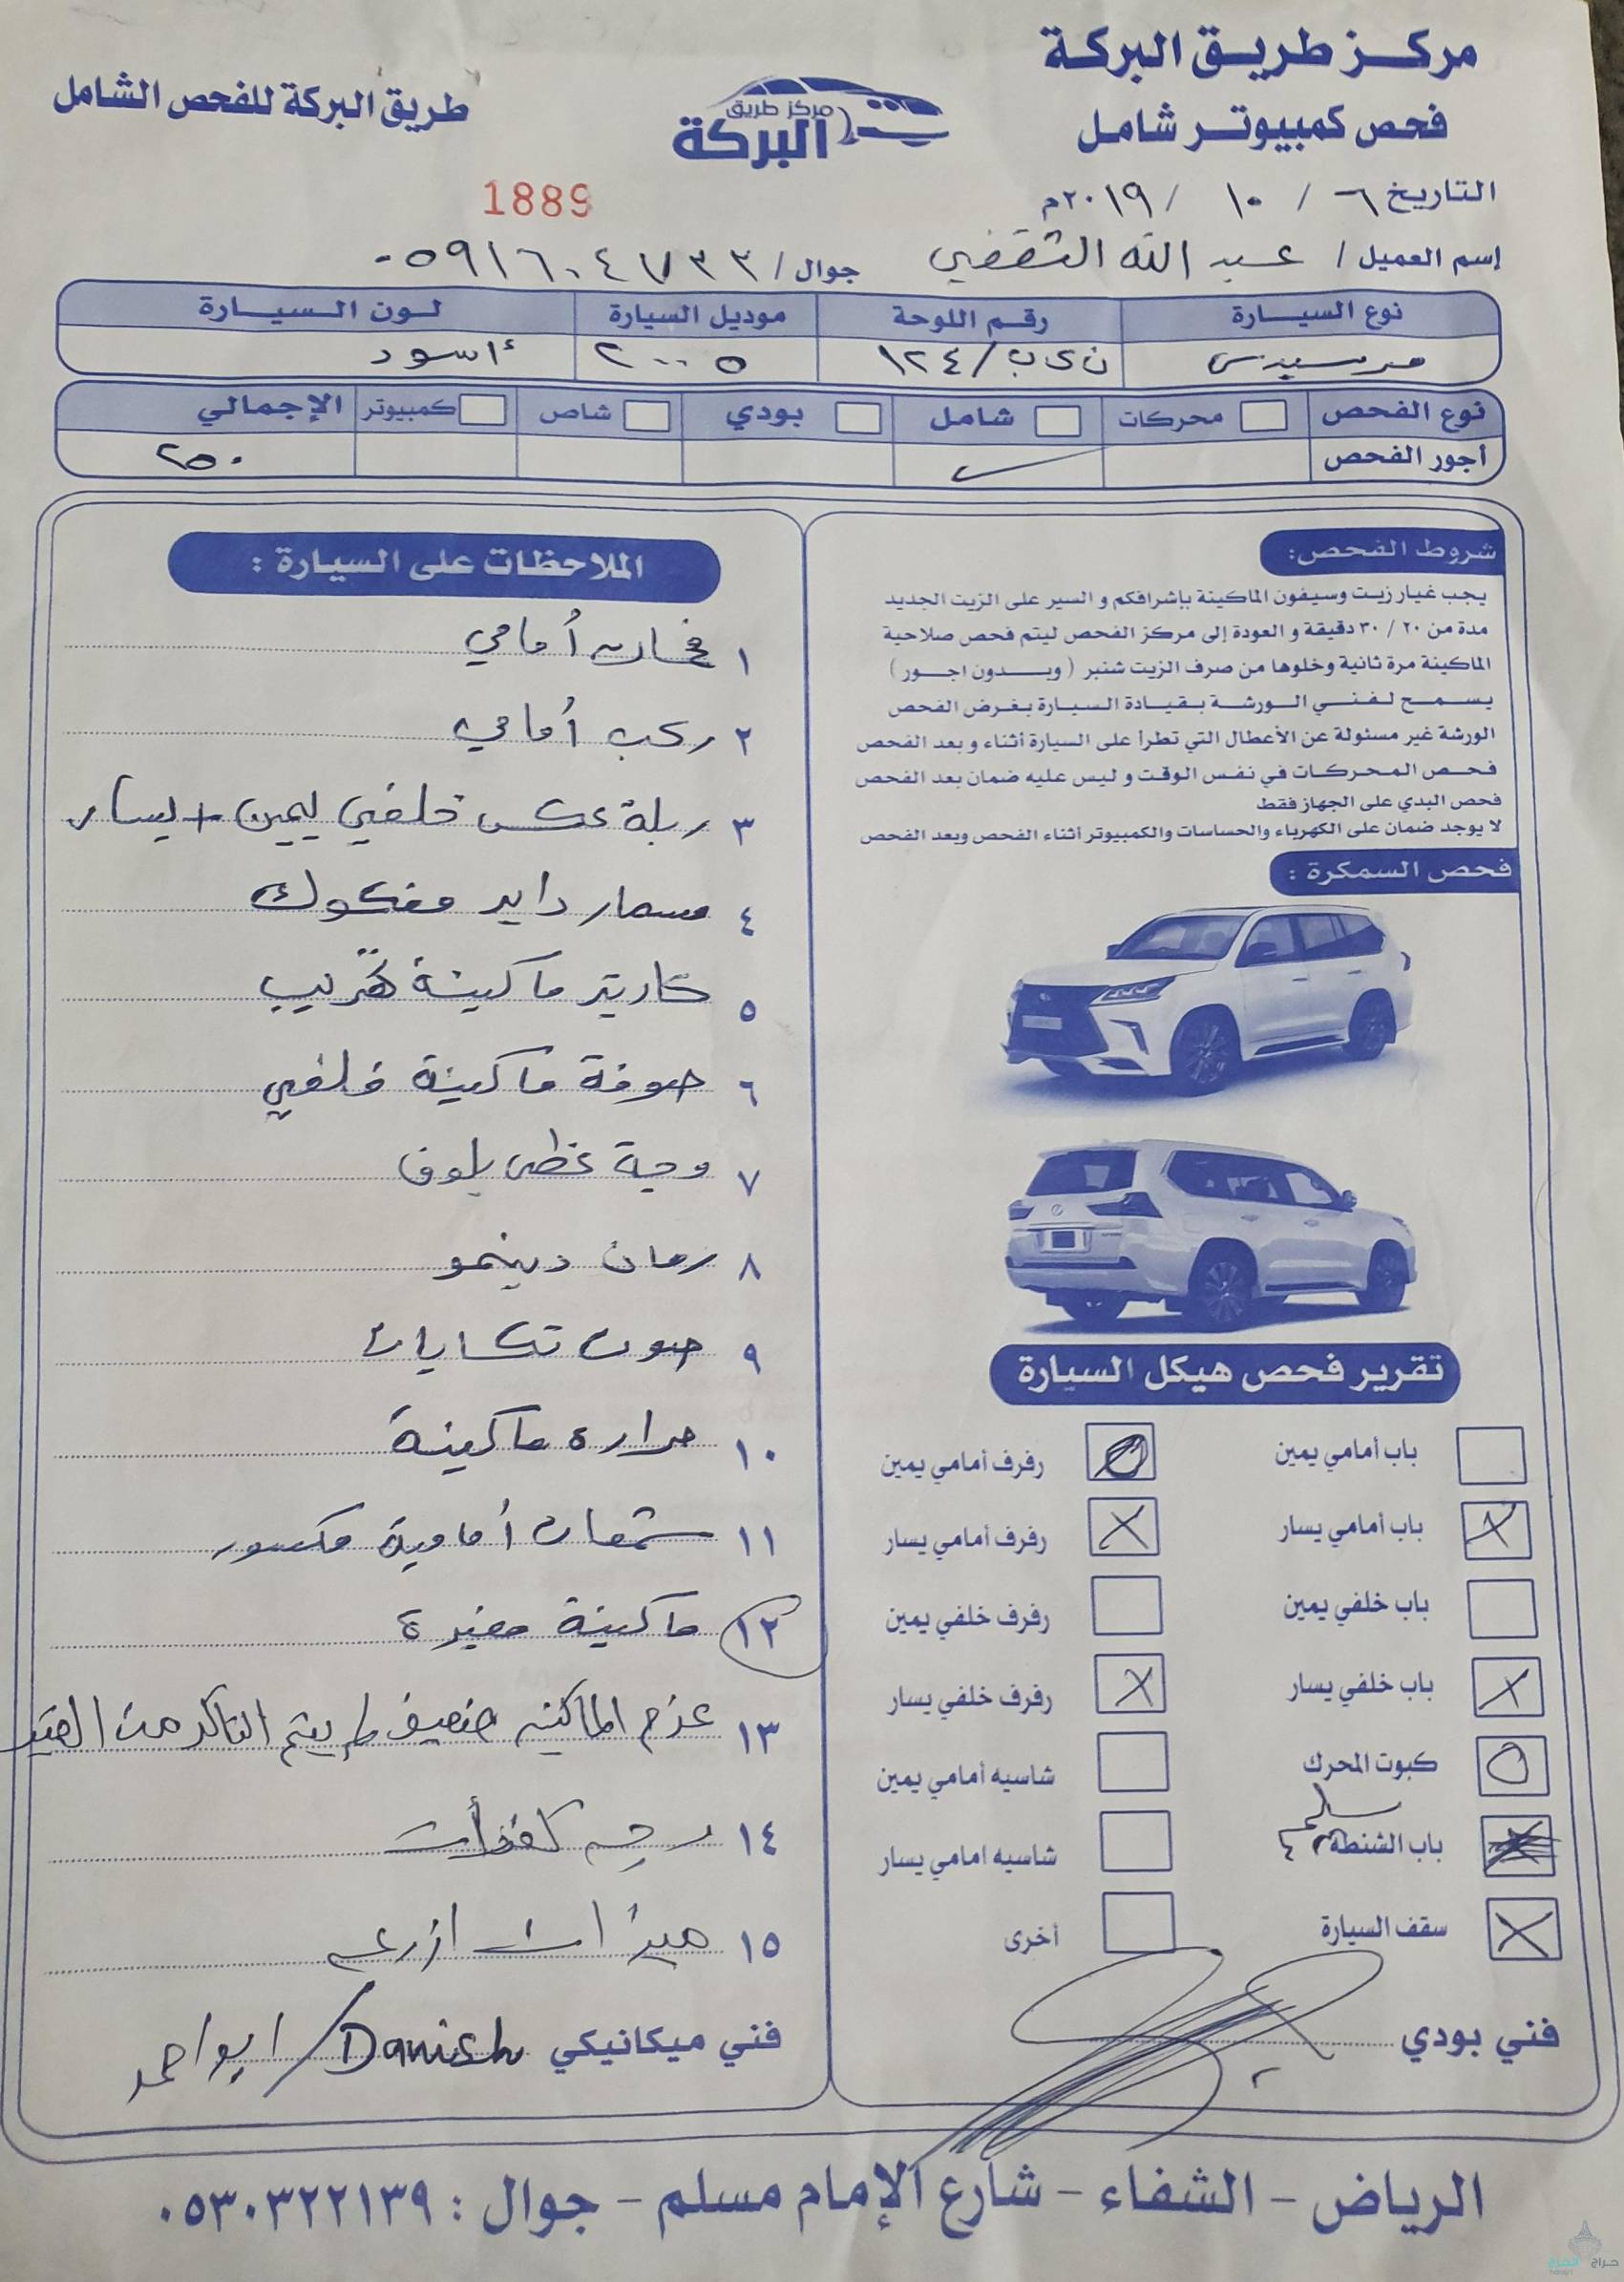 مركز طريق البركة
فحص كمبيوتر شامل
مركز طريق البركة
طريق البركة للفحص الشامل
1889
التاريخ ٦ / ١٠ / ٢٠١٩م
إسم العميل / عبد الله الثقفي جوال / ٠٥٩١٦٠٤٧٣٣
نوع السيارة رقم اللوحة موديل السيارة لون السيارة
مرسيدس ن ى ب / ١٢٤ ٢٠٠٥ أسود
نوع الفحص محركات شامل بودي شاص كمبيوتر الإجمالي
أجور الفحص ٢٥٠
شروط الفحص:
يجب غيار زيت وسيفون الماكينة بإشرافكم و السير على الزيت الجديد
مدة من ٢٠ / ٣٠ دقيقة و العودة إلى مركز الفحص ليتم فحص صلاحية
الماكينة مرة ثانية وخلوها من صرف الزيت شنبر ( وبدون اجور )
يسمح لفني الورشة بقيادة السيارة بغرض الفحص
الورشة غير مسئولة عن الأعطال التي تطرأ على السيارة أثناء و بعد الفحص
فحص المحركات في نفس الوقت و ليس عليه ضمان بعد الفحص
فحص البدي على الجهاز فقط
لا يوجد ضمان على الكهرباء والحساسات والكمبيوتر أثناء الفحص وبعد الفحص
فحص السمكرة :
تقرير فحص هيكل السيارة
باب أمامي يمين رفرف أمامي يمين
باب أمامي يسار رفرف أمامي يسار
باب خلفي يمين رفرف خلفي يمين
باب خلفي يسار رفرف خلفي يسار
كبوت المحرك شاسيه أمامي يمين
باب الشنطة شاسيه امامي يسار
سقف السيارة أخرى
فني بودي
الملاحظات على السيارة :
١ أمامي
٢ ركب أمامي
٣ ربلة عكس خلفي يمين + يسار
٤ مسمار داير مفكوك
٥ كارتير ماكينة تهريب
٦ صوفة ماكينة خلفي
٧ وجة غطى بلوف
٨ رمان دينمو
٩ صوت تكايات
١٠ حرارة ماكينة
١١ شمعات أمامية مكسور
١٢ ماكينة مغيرة
١٣ عزم الماكينه ضعيف
١٤ كفرات
١٥ ميزان اذرعه
فني ميكانيكي Danish / ابو احمد
الرياض - الشفاء - شارع الإمام مسلم - جوال : ٠٥٣٠٣٢٢١٣٩
حراج